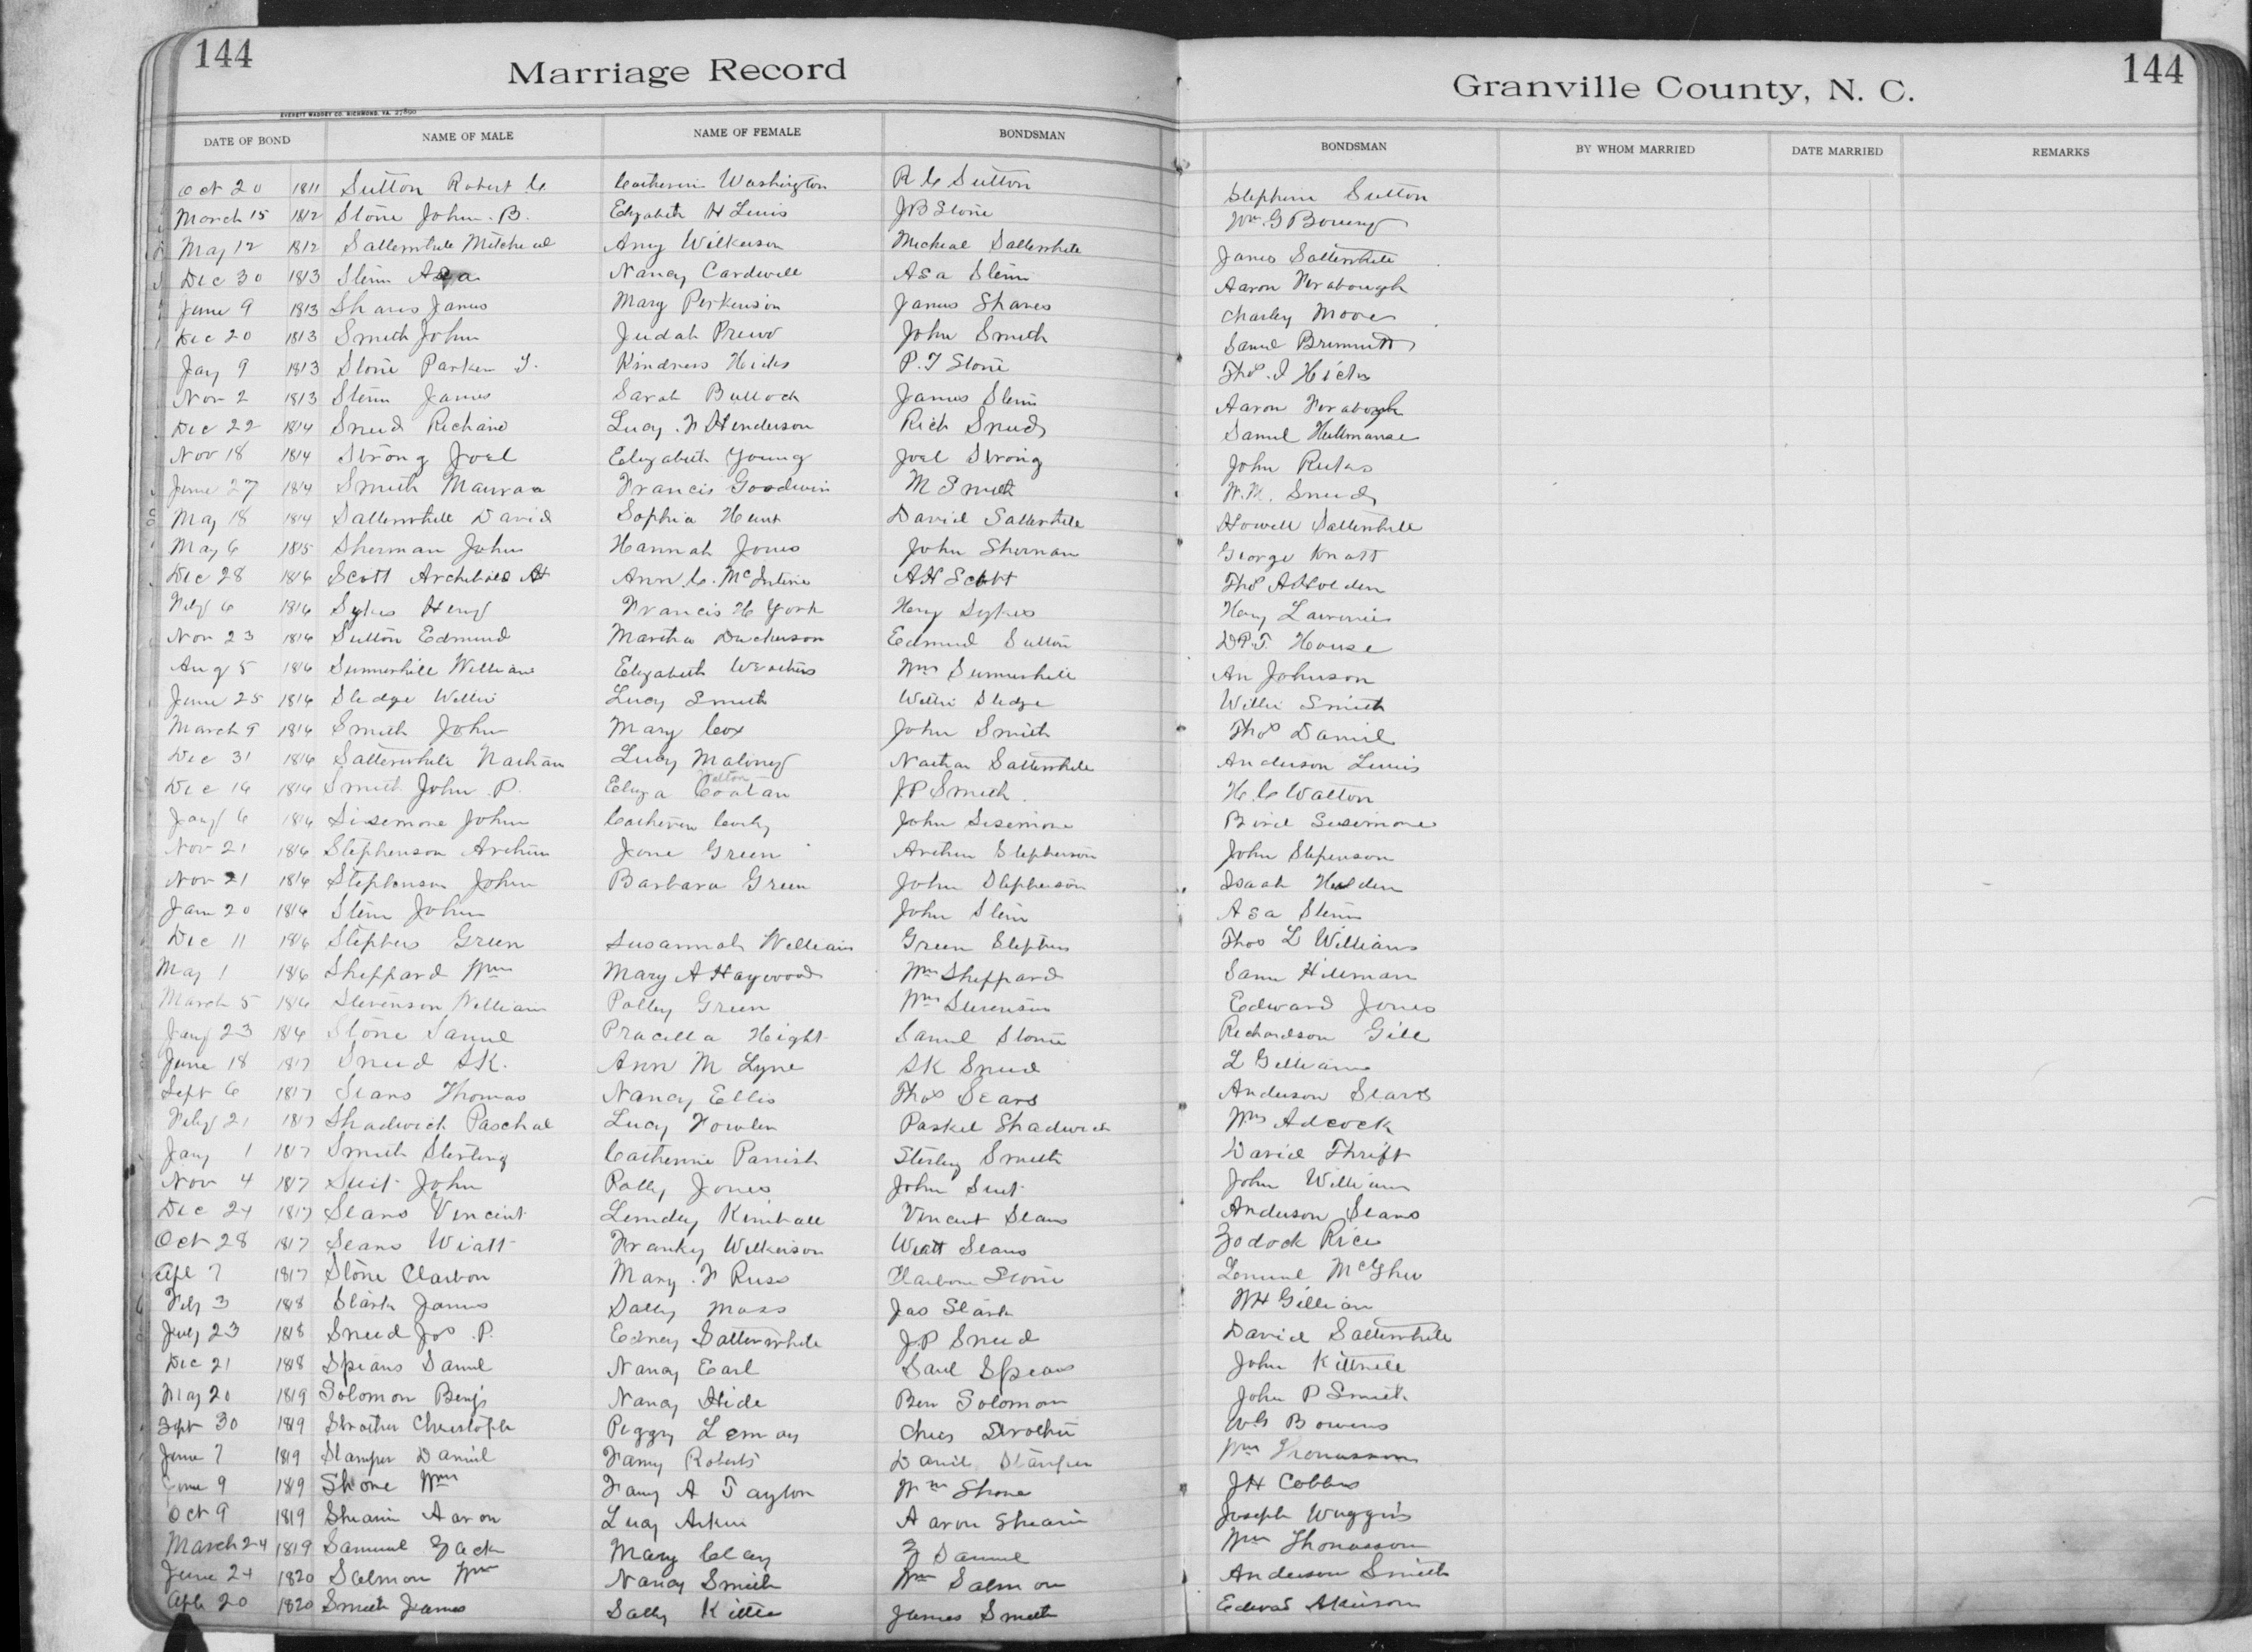 144
Marriage Record
Granville County, N. C.
144
EVERETT WADDEY CO. RICHMOND, VA. 27890
DATE OF BOND NAME OF MALE NAME OF FEMALE BONDSMAN BONDSMAN BY WHOM MARRIED DATE MARRIED REMARKS
Oct 20 1811 Sutton Robert C Catherine Washington R C Sutton Stephen Sutton
March 15 1812 Stone John B. Elizabeth H Lewis J B Stone Wm. G
May 12 1812 Satterwhite Micheal Amy Wilkerson Micheal Satterwhite James Satterwhite
Dec 30 1813 Asa Nancy Cardwell Asa Aaron
June 9 1813 James Mary Perkinson James Charley Moore
Dec 20 1813 Smith John Judah John Smith
Jany 9 1813 Stone Parker T. Kindness Hicks P. T Stone Thos. Hicks
Nov 2 1813 James Sarah Bullock James Aaron
Dec 22 1814 Sneed Richard Lucy N Henderson Rich Sneed Samul
Nov 18 1814 Strong Joel Elizabeth Young Joel Strong John
June 27 1814 Smith Francis Goodwin M Smith W. M. Sneed
May 18 1814 Satterwhite David Sophia Hunt David Satterwhite Howell Satterwhite
May 6 1815 Sherman John Hannah Jones John Sherman George Knott
Dec 28 1816 Scott Archibald H Ann C. McIntire A H Scott Thos
Feby 6 1816 Sykes Heny Francis H York Heny Sykes Heny
Nov 23 1816 Sutton Edmund Martha Edmund Sutton House
Aug 5 1816 Summerhill William Elizabeth Wm Summerhill An Johnson
June 25 1816 Sledge Willie Lucy Smith Willie Sledge Willie Smith
March 9 1816 Smith John Mary Cox John Smith Thos Daniel
Dec 31 1816 Satterwhite Nathan Lucy Maloney Nathan Satterwhite Anderson Lewis
Dec 16 1816 Smith John P. Eliza J P Smith H. C Walton
Jany 6 1816 Sizemore John Catherine John
Nov 21 1816 Stephenson Arthur Jane Green Arthur Stephenson John Stepenson
Nov 21 1816 Stephenson John Barbara Green John Stephenson Isaah
Jan 20 1816 John John Asa
Dec 11 1816 Stephens Green Susannah William Green Stephens Thos L Williams
May 1 1816 Sheppard Wm Mary A Haywood Wm Sheppard Sam Hillman
March 5 1816 Stevenson William Polley Green Wm Stevenson Edward Jones
Jany 23 1816 Stone Samul Pracilla Hight Samul Stone Richardson Gill
June 18 1817 Sneed S K. Ann M Lyne S K Sneed L Gilliam
Sept 6 1817 Sears Thomas Nancy Ellis Thos Sears Anderson Sears
Feby 21 1817 Shadwick Paschal Lucy Fowler Paskel Shadwick Wm Adcock
Jany 1 1817 Smith Sterling Catherine Parrish Sterling Smith David Thrift
Nov 4 1817 Suit John Polly Jones John Suit John Williams
Dec 24 1817 Sears Vincent Kimball Vincent Sears Anderson Sears
Oct 28 1817 Sears Wiatt Franky Wilkerson Wiatt Sears Zodock Rice
Apl 7 1817 Stone Clarbon Mary F Russ Clarbone Stone Lemuel McGhee
Feby 3 1818 Stark James Sally Moss Jas Stark W H Gilliam
July 23 1818 Sneed Jos. P. Edney Satterwhite J. P Sneed David Satterwhite
Dec 21 1818 Spears Samul Nancy Earl Saml Spears John Kittrell
May 20 1819 Solomon Benj Nancy Hide Ben Solomon John P Smith
Sept 30 1819 Strother Christopher Peggy Lemay Chris Strother
June 7 1819 Stamper Daniel Fanny Roberts Daniel Stamper Wm Thomasson
June 9 1819 Shore Wm Fanny A Taylor Wm Shore J H Cobbs
Oct 9 1819 Shearin Aaron Lucy Aaron Shearin Joseph
March 24 1819 Samuel Zack Mary Clay Z Samuel Wm Thomasson
June 24 1820 Salmon Wm Nancy Smith Wm Salmon Anderson Smith
Apl 20 1820 Smith James Sally James Smith